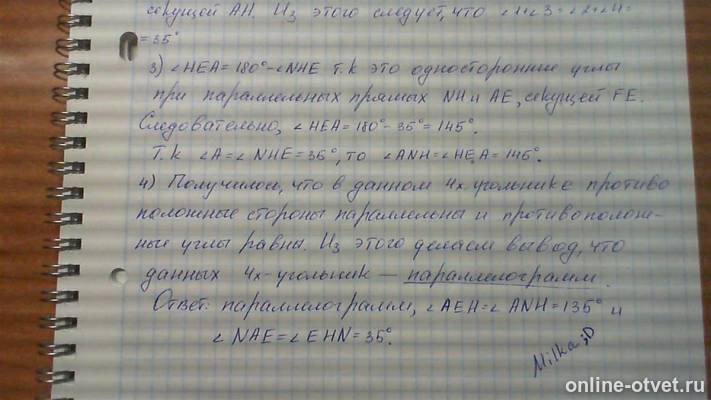 секущей AH. Из этого следует, что ∠1=∠3=∠2=∠4=
=35°
3) ∠HEA=180°-∠NHE т.к это односторонние углы
при параллельных прямых NH и AE, секущей FE.
Следовательно, ∠HEA=180°-35°=145°.
Т.к ∠A=∠NHE=35°, то ∠ANH=∠HEA=145°.
4) Получилось, что в данном 4х-угольнике противо
положные стороны параллельны и противополож-
ные углы равны. Из этого делаем вывод, что
данных 4х-угольник — параллелограмм.
Ответ: параллелограмм, ∠AEH=∠ANH=135° и
∠NAE=∠EHN=35°.
Milka ;D
online-otvet.ru